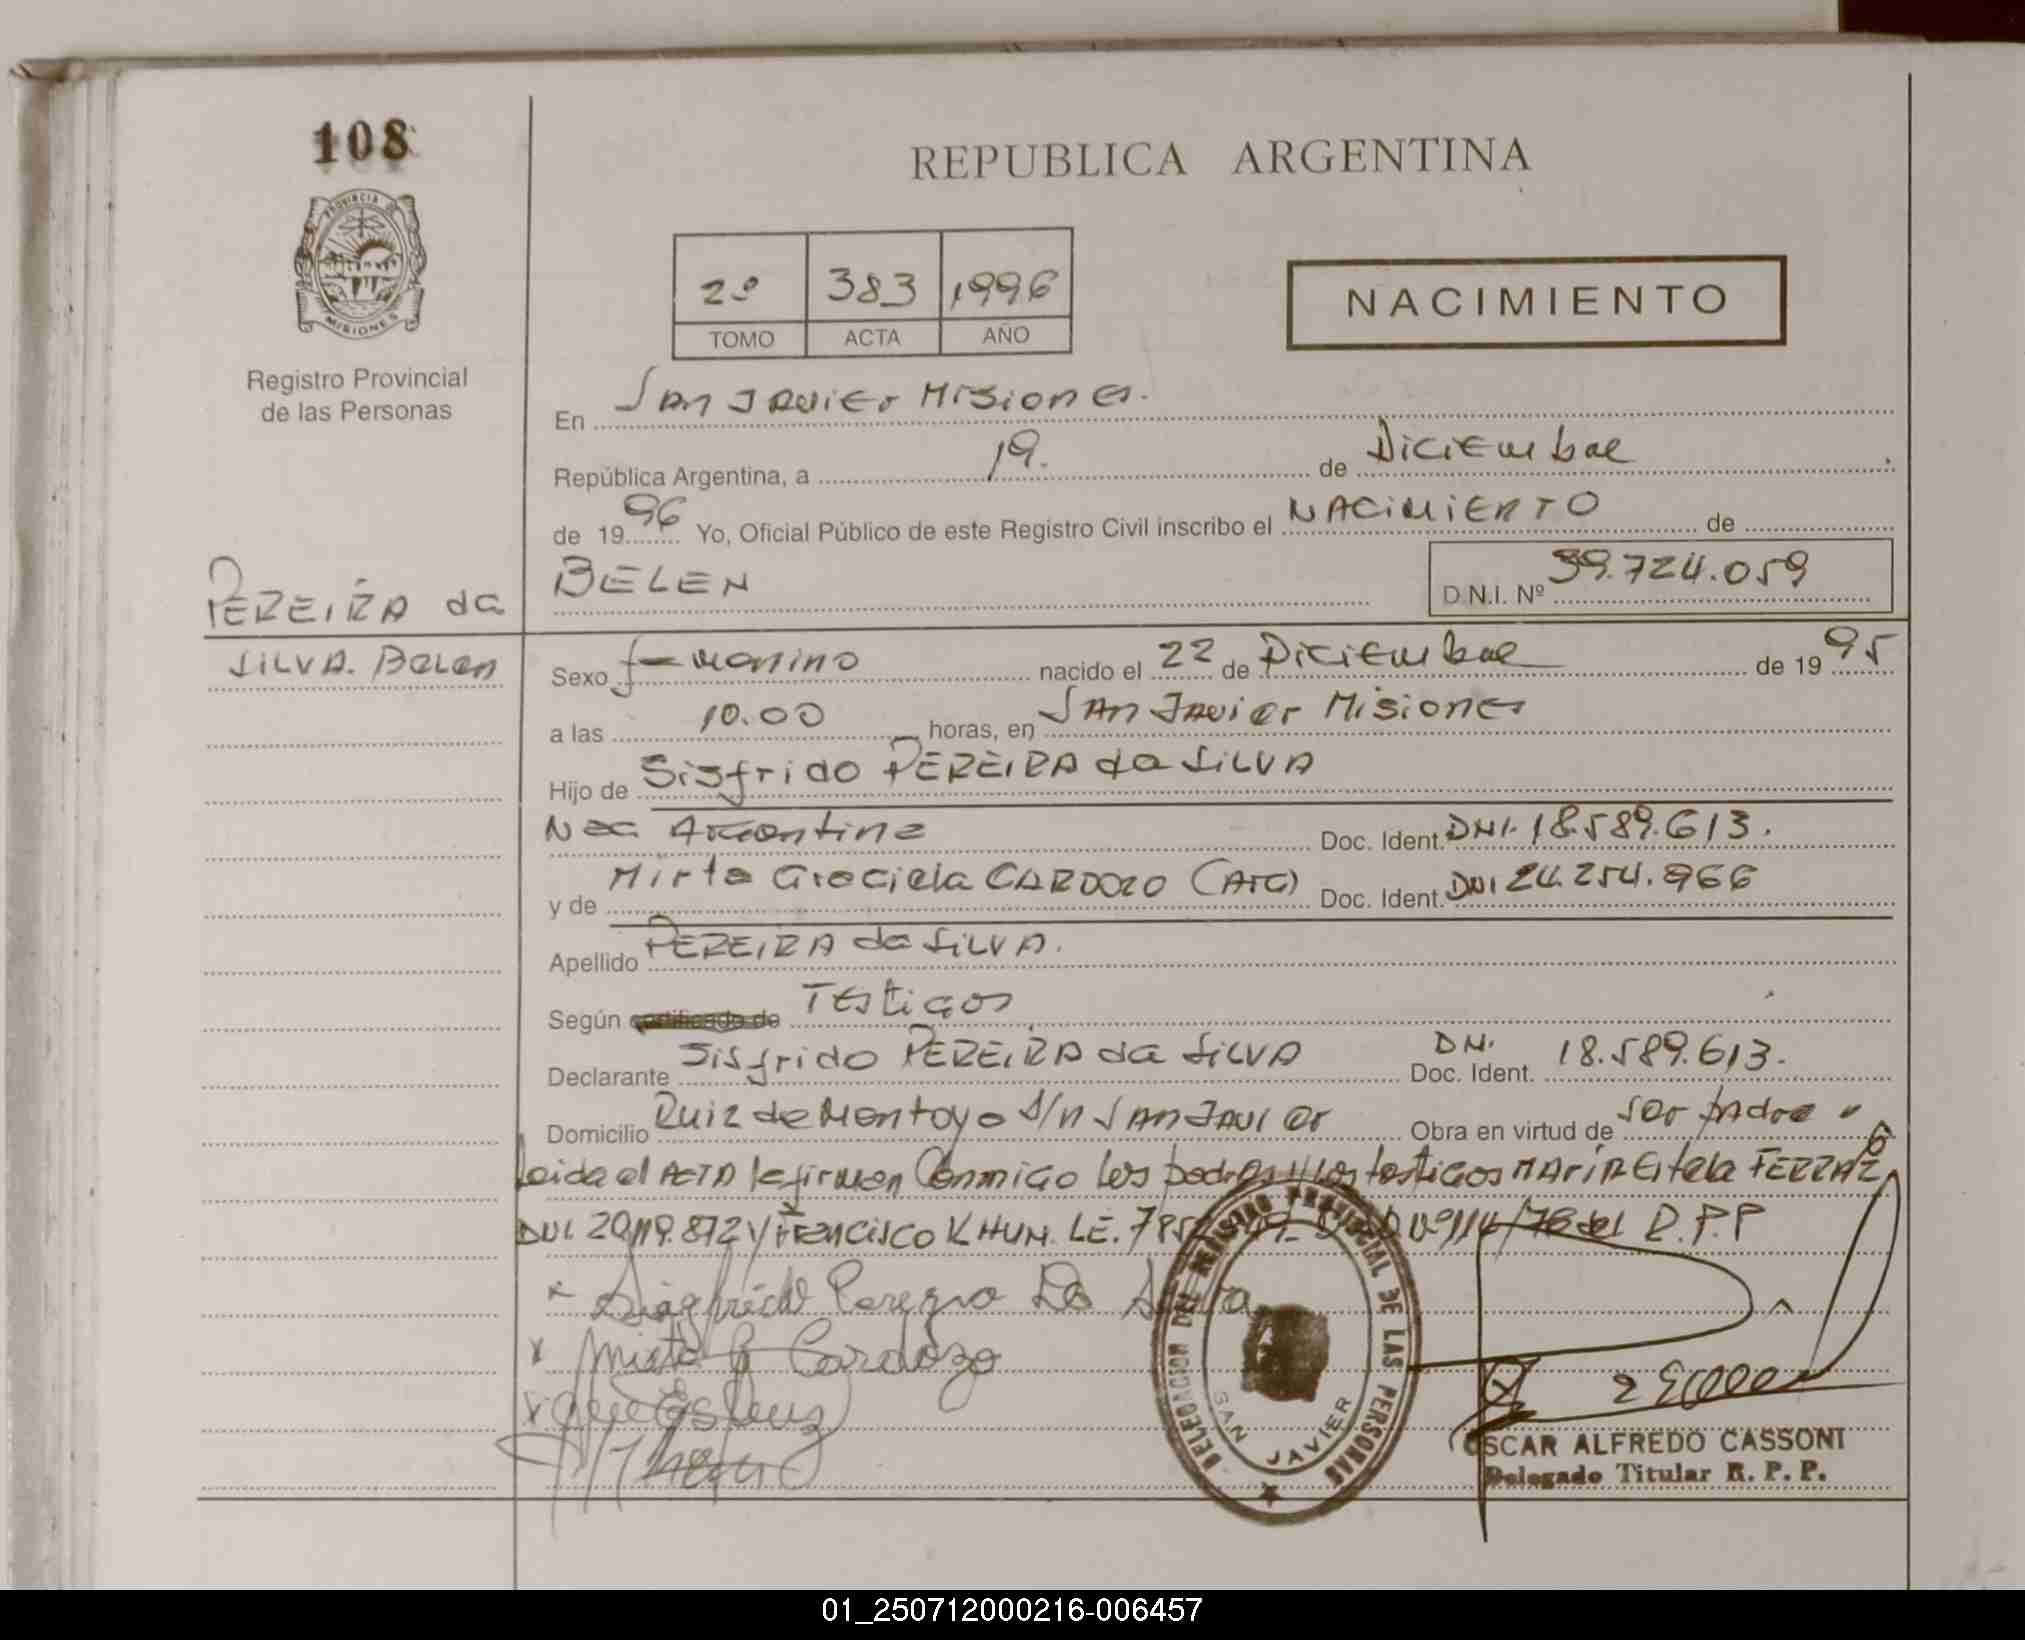 108
REPUBLICA ARGENTINA
PROVINCIA DE
MISIONES
Registro Provincial
de las Personas
2º 383 1996
TOMO ACTA AÑO
NACIMIENTO
En San Javier Misiones.
República Argentina, a 19. de Diciembre
de 1996 Yo, Oficial Público de este Registro Civil inscribo el NACIMIENTO de
BELEN D.N.I. Nº 39.724.059
PEREIRA da
SILVA. Belen
Sexo femenino nacido el 22 de Diciembre de 1995
a las 10.00 horas, en San Javier Misiones
Hijo de Sisfrido PEREIRA da SILVA
Nac Argentina Doc. Ident. DNI. 18.589.613.
y de Mirta Graciela CARDOZO (ARG) Doc. Ident. DNI 24.254.966
Apellido PEREIRA da SILVA.
Según certificado de Testigos
Declarante Sisfrido PEREIRA da SILVA Doc. Ident. DNI. 18.589.613.
Domicilio Ruiz de Montoya S/n San Javier Obra en virtud de ser padre
Leida el ACTA la firman Conmigo los padres y los testigos Maria Estela FERRAZ
DNI 20.119.872 y Francisco KHUN. L.E. Nº 114/78 del R.P.P
Siegfrido Pereyra Da Silva
Mirta G Cardozo
DELEGACION DEL REGISTRO PROVINCIAL DE LAS PERSONAS
SAN JAVIER
OSCAR ALFREDO CASSONI
Delegado Titular R. P. P.
01_250712000216-006457